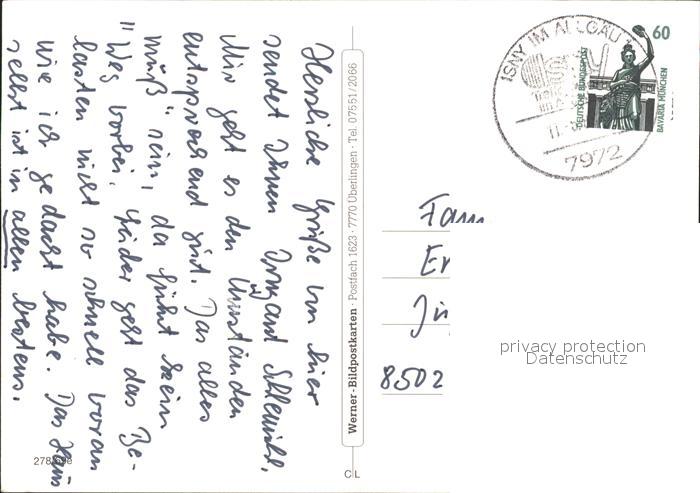 Herzliche Grüße von hier
sendet Ihnen Irmgard
Mir geht es den Umständen
entsprechend gut. Das alles
"muß" sein, da führt kein
Weg vorbei. Leider geht das Be-
lasten nicht so schnell voran
wie ich gedacht habe. Das Haus
selbst ist in allem bestens.
278/59e
Werner-Bildpostkarten · Postfach 1623 · 7770 Überlingen · Tel. 07551/2066
C L
ISNY IM ALLGÄU
7972
60
DEUTSCHE BUNDESPOST
BAVARIA MÜNCHEN
Fam
Er
8502
privacy protection
Datenschutz